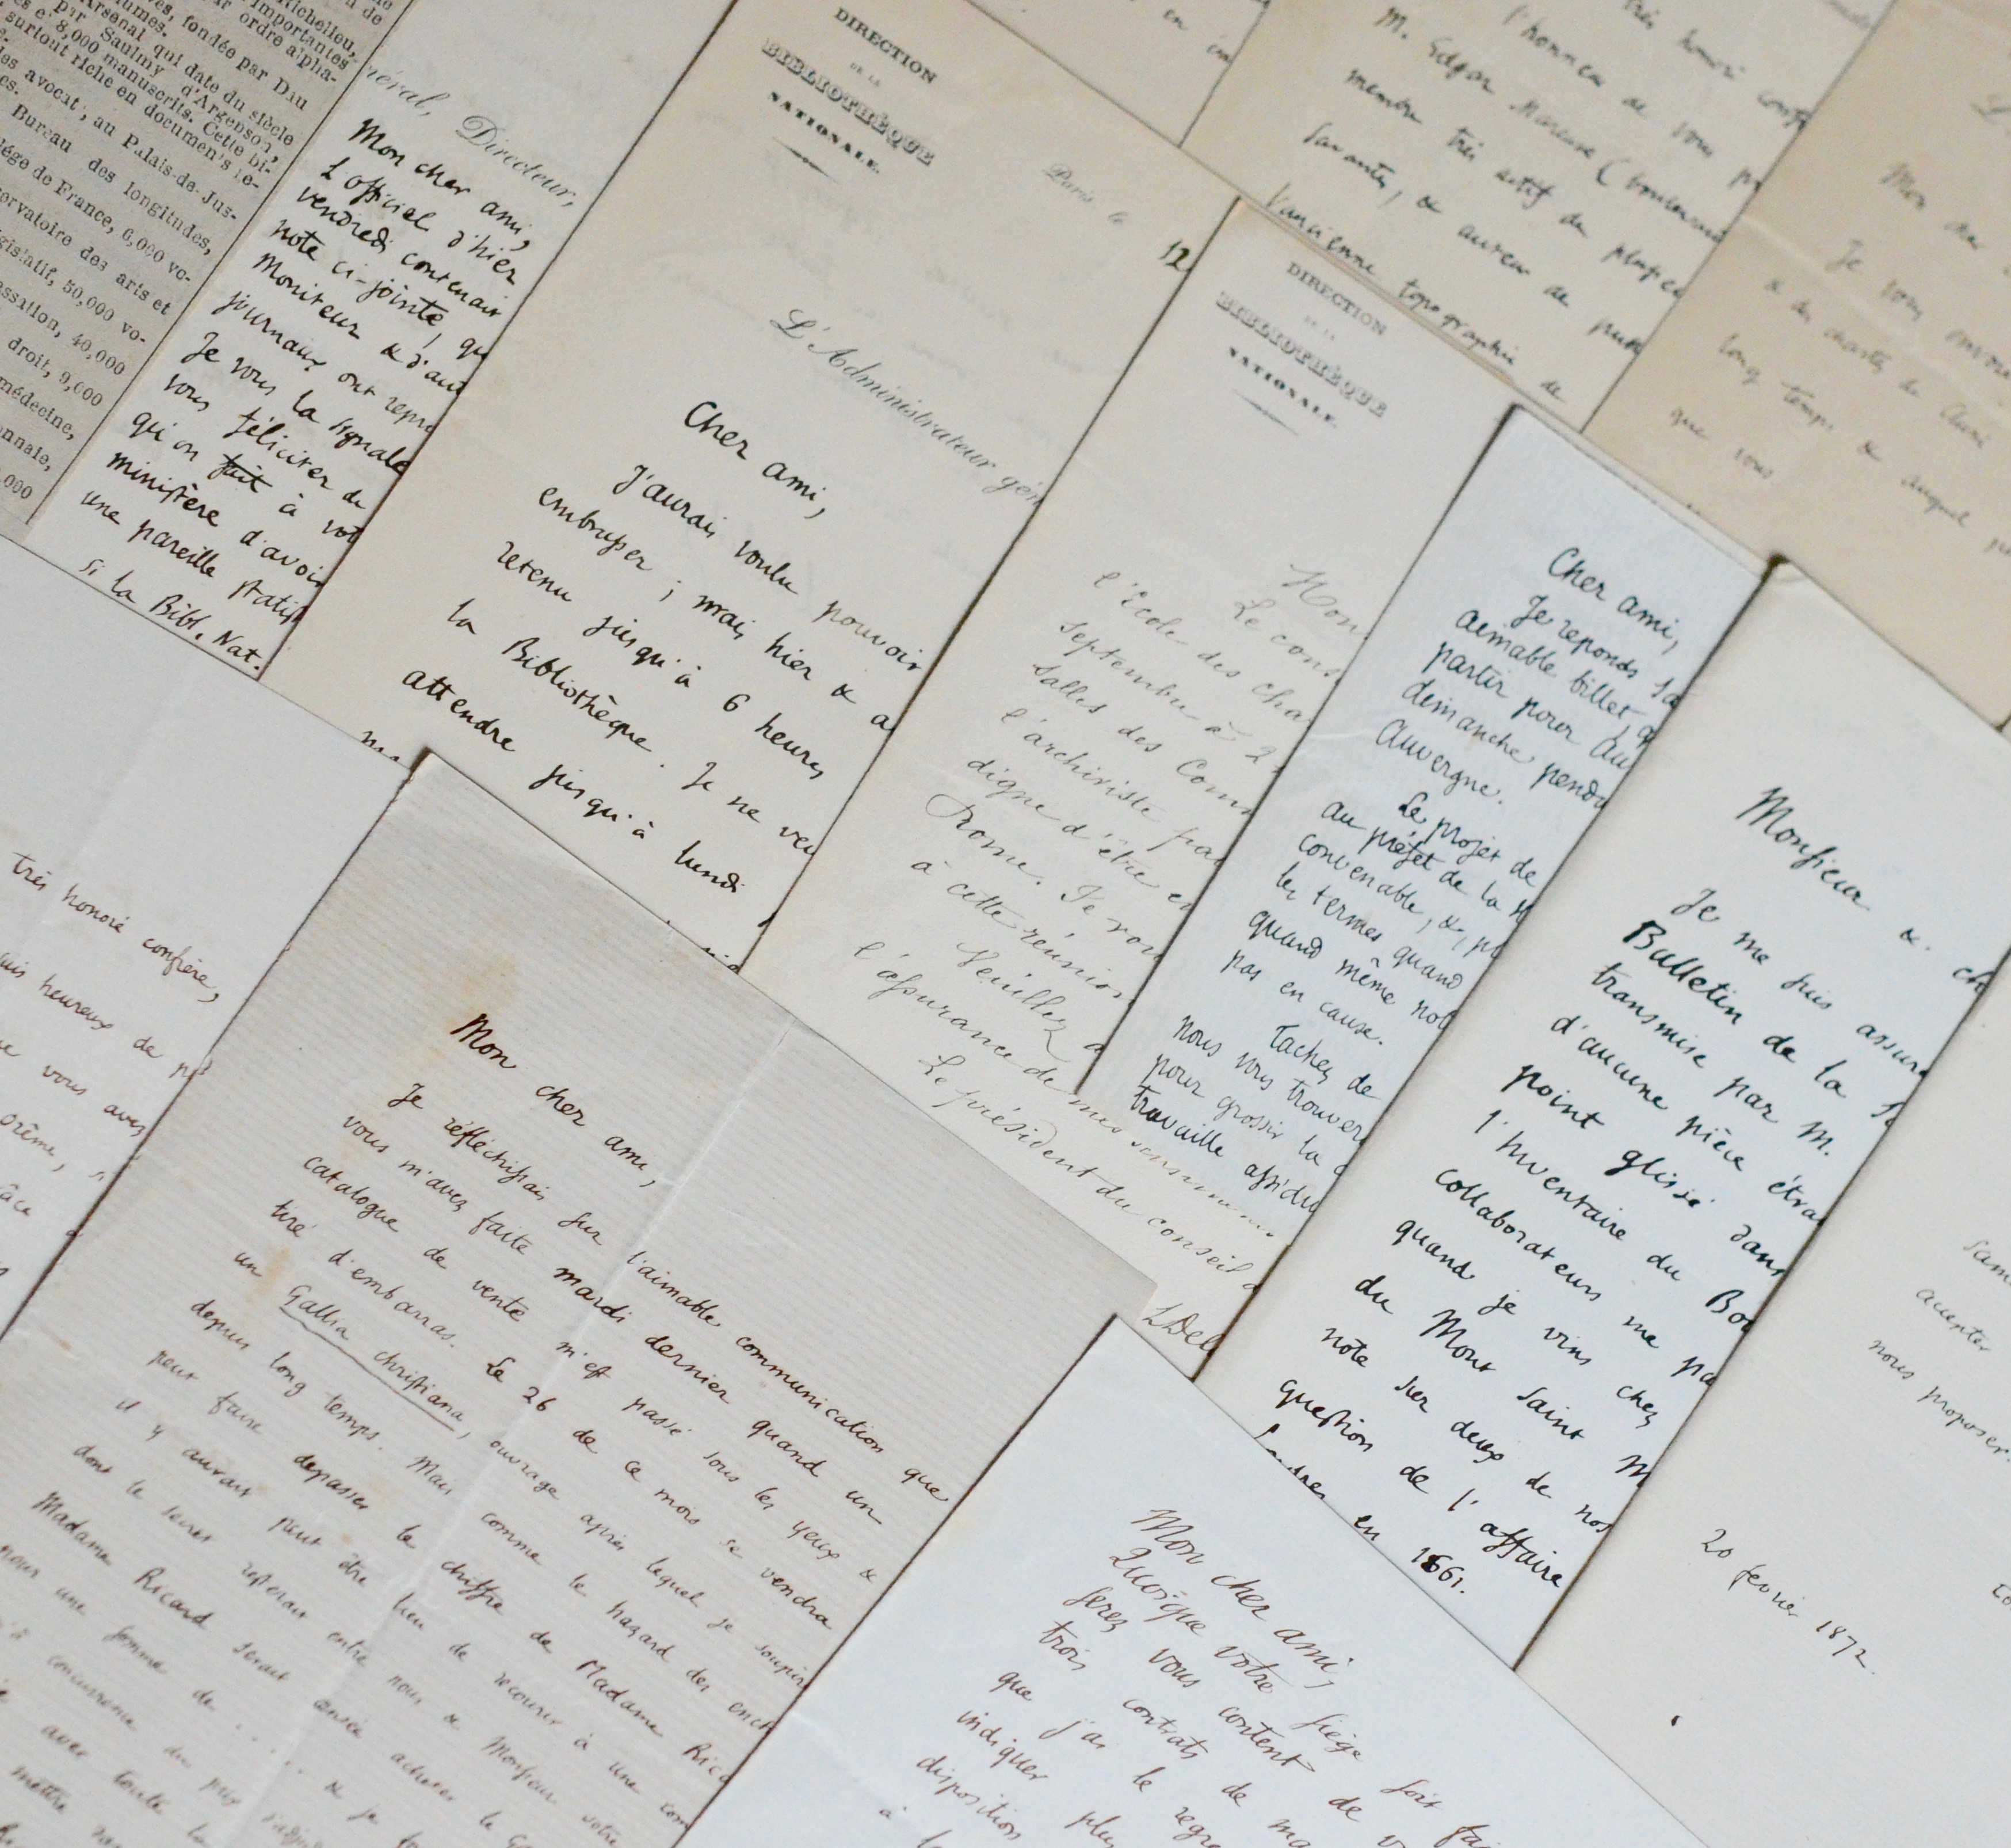 Richelieu,
importantes
ordre alpha-
lumes.
fondée par Dau
Arsenal qui date du siècle
par Saulmy d'Argenson,
8,000 manuscrits. Cette bi-
surtout riche en documents
avocat; au Palais-de-Jus-
Bureau des longitudes,
de France, 6,000 vo-
des arts et
50,000 vo-
40,000
droit, 9,000
médecine,
000
Directeur,
Mon cher ami,
L'officiel d'hier
vendredi contenait
note ci-jointe, qu
Moniteur & d'aut
journaux ont repro
Je vous la signale
vous féliciter du
qu'on fait à vot
ministère d'avoir
une pareille statist
si la Bibl. Nat.
DIRECTION
DE LA
BIBLIOTHÈQUE
NATIONALE.
Paris, le
12
L'Administrateur gén
Cher ami,
J'aurais voulu pouvoir
embrasser ; mais hier & a
retenu jusqu'à 6 heures
la Bibliothèque. Je ne veu
attendre jusqu'à lundi
DIRECTION
DE LA
BIBLIOTHÈQUE
NATIONALE.
Mon
Le cons
l'Ecole des cha
septembre à 2
salles des Cours
l'archiviste pa
digne d'être e
Rome. Je vou
à cette réunion
Veuillez a
l'assurance de mes
Le président du conseil d
L Del
très honoré conf
l'honneur de vous pr
M. Edgar Mareuse (boulevard
membre très actif de plusieu
savantes, & auteur de
l'ancienne topographie de
Je vous envoie
long temps & auquel
que vous
Cher ami,
Je reponds sa
aimable billet, q
partir pour Au
dimanche penda
Auvergne.
Le projet de
au préfet de la
convenable, &, po
les termes quand
quand même not
pas en cause.
Tachez de
nous vous trouver
pour grossir la
travaille assidu
Monsieur & ch
Je me suis assuré
Bulletin de la So
transmise par M.
d'aucune pièce étra
point glissé dans
l'Inventaire du Bou
collaborateurs me pa
quand je vins chez
du Mont Saint M
note sur deux de nos
question de l'affaire
Londres en 1861.
accepter
nous proposer.
20 fevrier 1872.
très honoré confrère,
heureux de
vous avez
Mon cher ami,
Je réfléchissais sur l'aimable communication que
vous m'avez faite mardi dernier quand un
catalogue de vente m'est passé sous les yeux &
tiré d'embarras. Le 26 de ce mois se vendra
un Gallia christiana, ouvrage après lequel je soupire
depuis long temps. Mais comme le hazard des ench
peut faire depasser le chiffre de Madame Rica
il y aurait peut être lieu de recourir à une com
dont le secret resterait entre nous & Monsieur votre
Madame Ricard serait censée acheter le Ga
pour une somme de . . . . & je
concurrence du prix
avec toute la
mettre
Mon cher ami,
Quoique votre siège soit fai
serez vous content de
trois contrats de ma
que j'ai le regre
indiquer plu
disposition
à